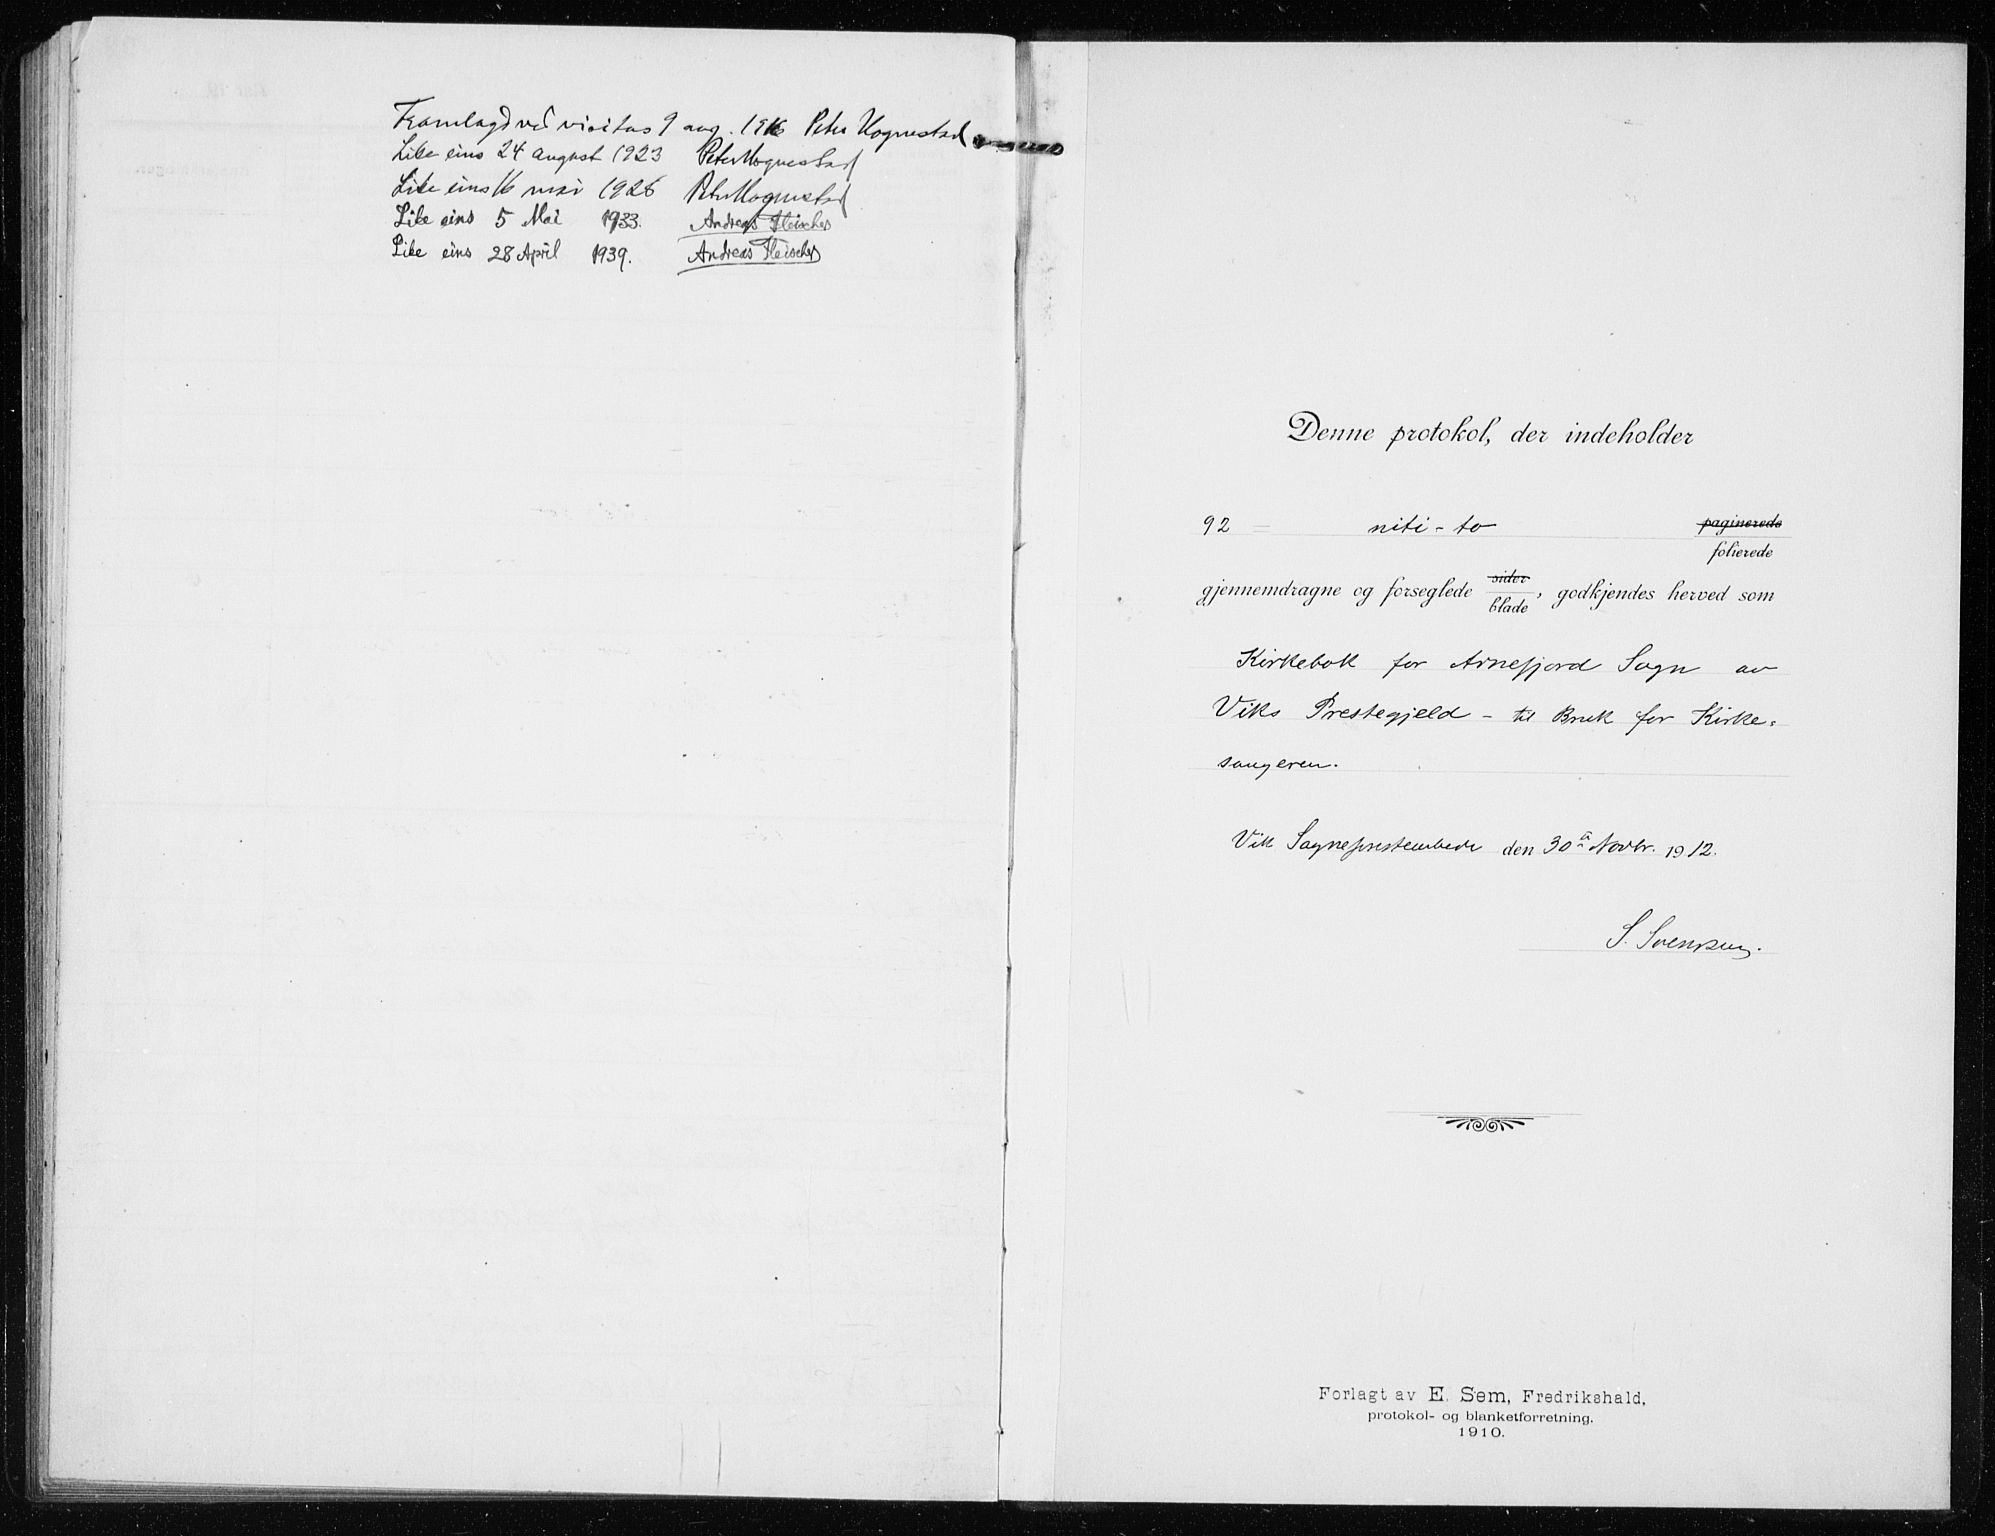 Framlagd ved visitas 9 aug. 1916 Peter Hognestad
Like eins 24 august 1923 Peter Hognestad
Like eins 16 mai 1926 Peter Hognestad
Like eins 5 Mai 1933. Andreas Fleischer
Like eins 28 April 1939. Andreas Fleischer
Denne protokol, der indeholder
92 = niti-to paginerede
folierede
gjennemdragne og forseglede sider blade, godkjendes herved som
Kirkebok for Arnefjord Sogn av
Viks Prestegjeld - til Bruk for Kirke=
sangeren.
Vik Sogneprestembede den 30te Novbr. 1912.
S. Svensen.
Forlagt av E. Sem, Fredrikshald,
protokol- og blanketforretning.
1910.